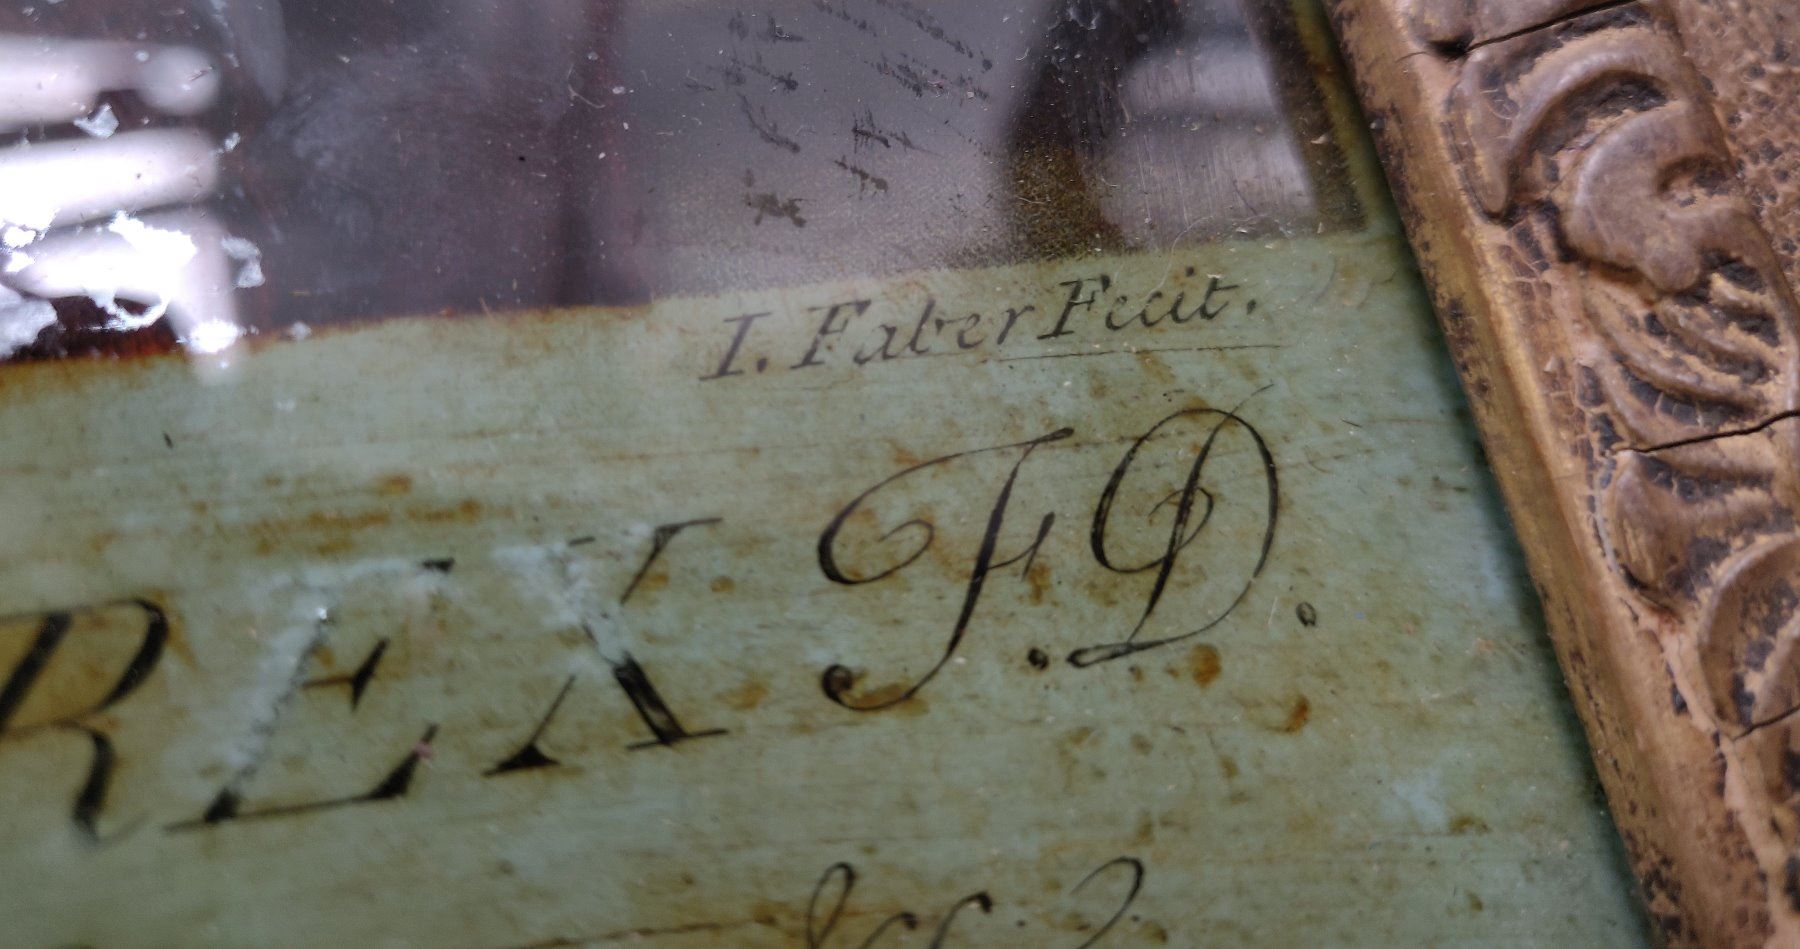 I. Faber Fecit.
REX F.D.